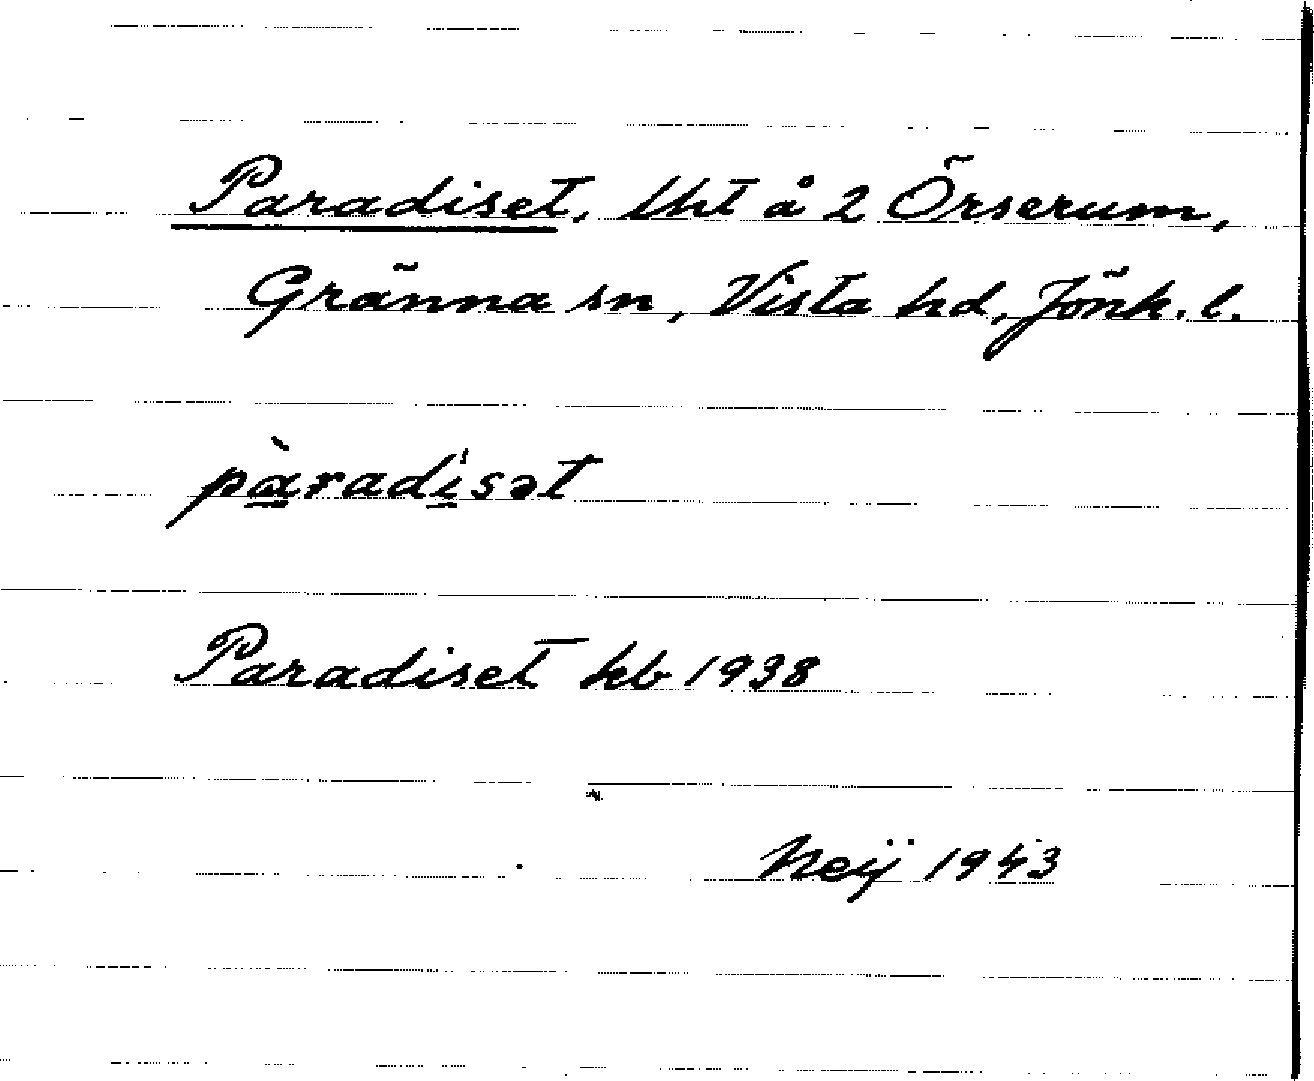 Paradiset, lht å 2 Örserum,
Gränna sn, Vista hd, Jönk. l.
pàradisət
Paradiset kb 1938
Neij 1943